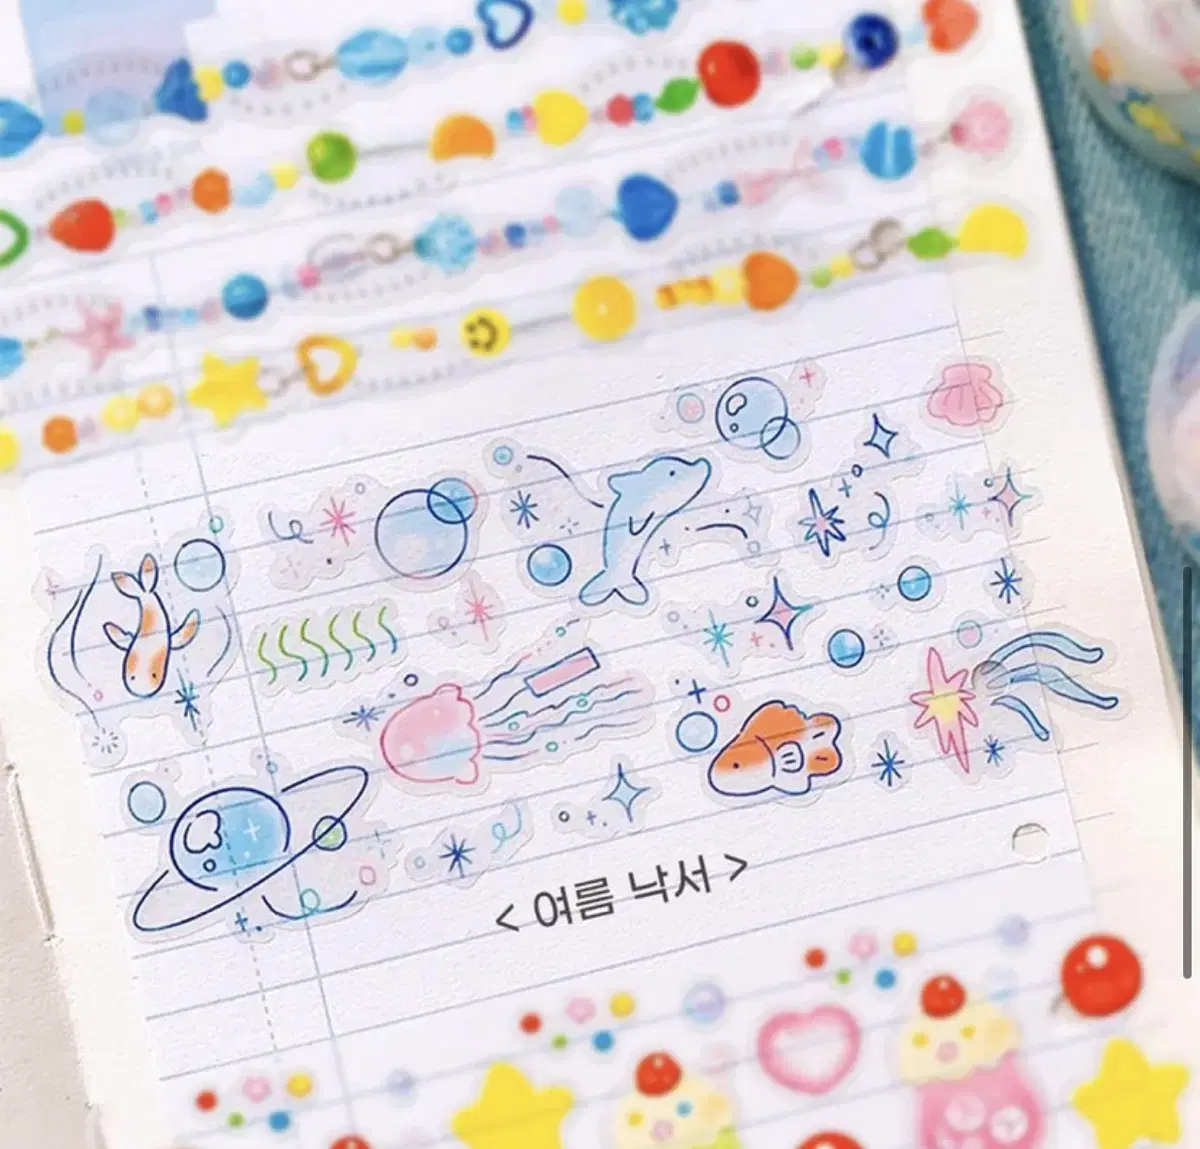 < 여름 낙서 >